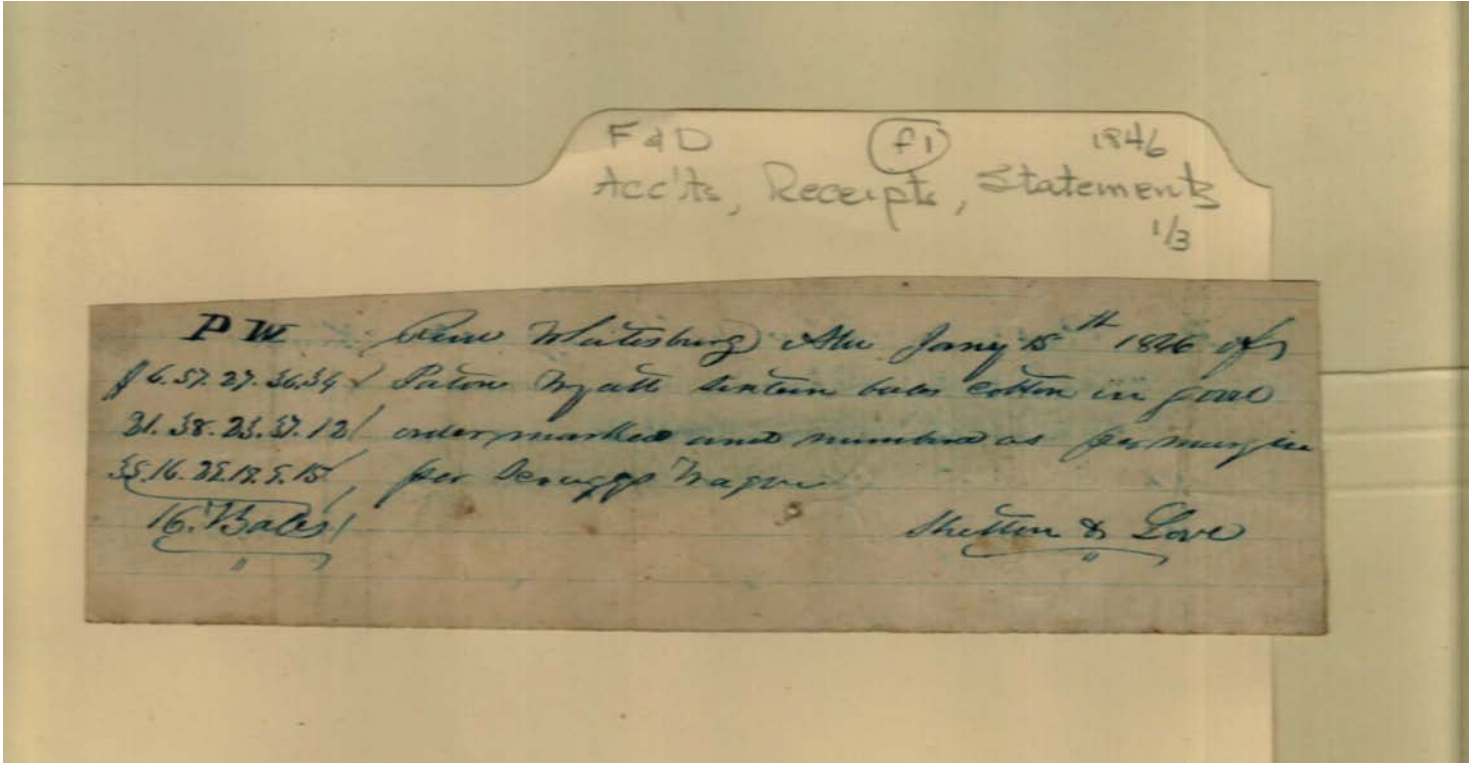 F & D (f1) 1846
Acc'ts, Receipts, Statements
1/3
P W Whitesburg Ala Jany 15th 1846 of
6. 37. 27. 36. 34 Paton Wyatt Sixteen bales Cotton in good
21. 38. 23. 37. 12 order marked and numbered as per margin
35. 16. 25. 17. 5. 15 per Scruggs Wagon
16. Bales Shelton & Love